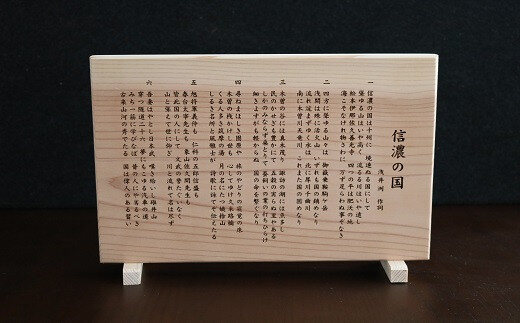 信濃の国
浅井洌 作詞
一 信濃の国は十州に 境連ぬる国にして
聳ゆる山はいや高く 流るる川はいや遠し
松本伊那佐久善光寺 四つの平は肥沃の地
海こそなけれ物さわに 万ず足らわぬ事ぞなき
二 四方に聳ゆる山々は 御嶽乗鞍駒ヶ岳
浅間は殊に活火山 いずれも国の鎮めなり
流れ淀まずゆく水は 北に犀川千曲川
南に木曽川天竜川 これまた国の固めなり
三 木曽の谷には真木茂り 諏訪の湖には魚多し
民のかせぎも豊かにて 五穀の実らぬ里やある
しかのみならず桑とりて 蚕飼いの業の打ちひらけ
細きよすがも軽からぬ 国の命を繋ぐなり
四 尋ねまほしき園原や 旅のやどりの寝覚の床
木曽の桟かけし世も 心してゆけ久米路橋
くる人多き筑摩の湯 月の名にたつ姨捨山
しるき名所と風雅士が 詩歌に詠てぞ伝えたる
五 旭将軍義仲も 仁科の五郎信盛も
春台太宰先生も 象山佐久間先生も
皆此国の人にして 文武の誉たぐいなく
山と聳えて世に仰ぎ 川と流れて名は尽ず
六 吾妻はやとし日本武 嘆き給いし碓氷山
穿つ隧道二十六 夢にもこゆる汽車の道
みち一筋に学びなば 昔の人にや劣るべき
古来山河の秀でたる 国は偉人のある習い